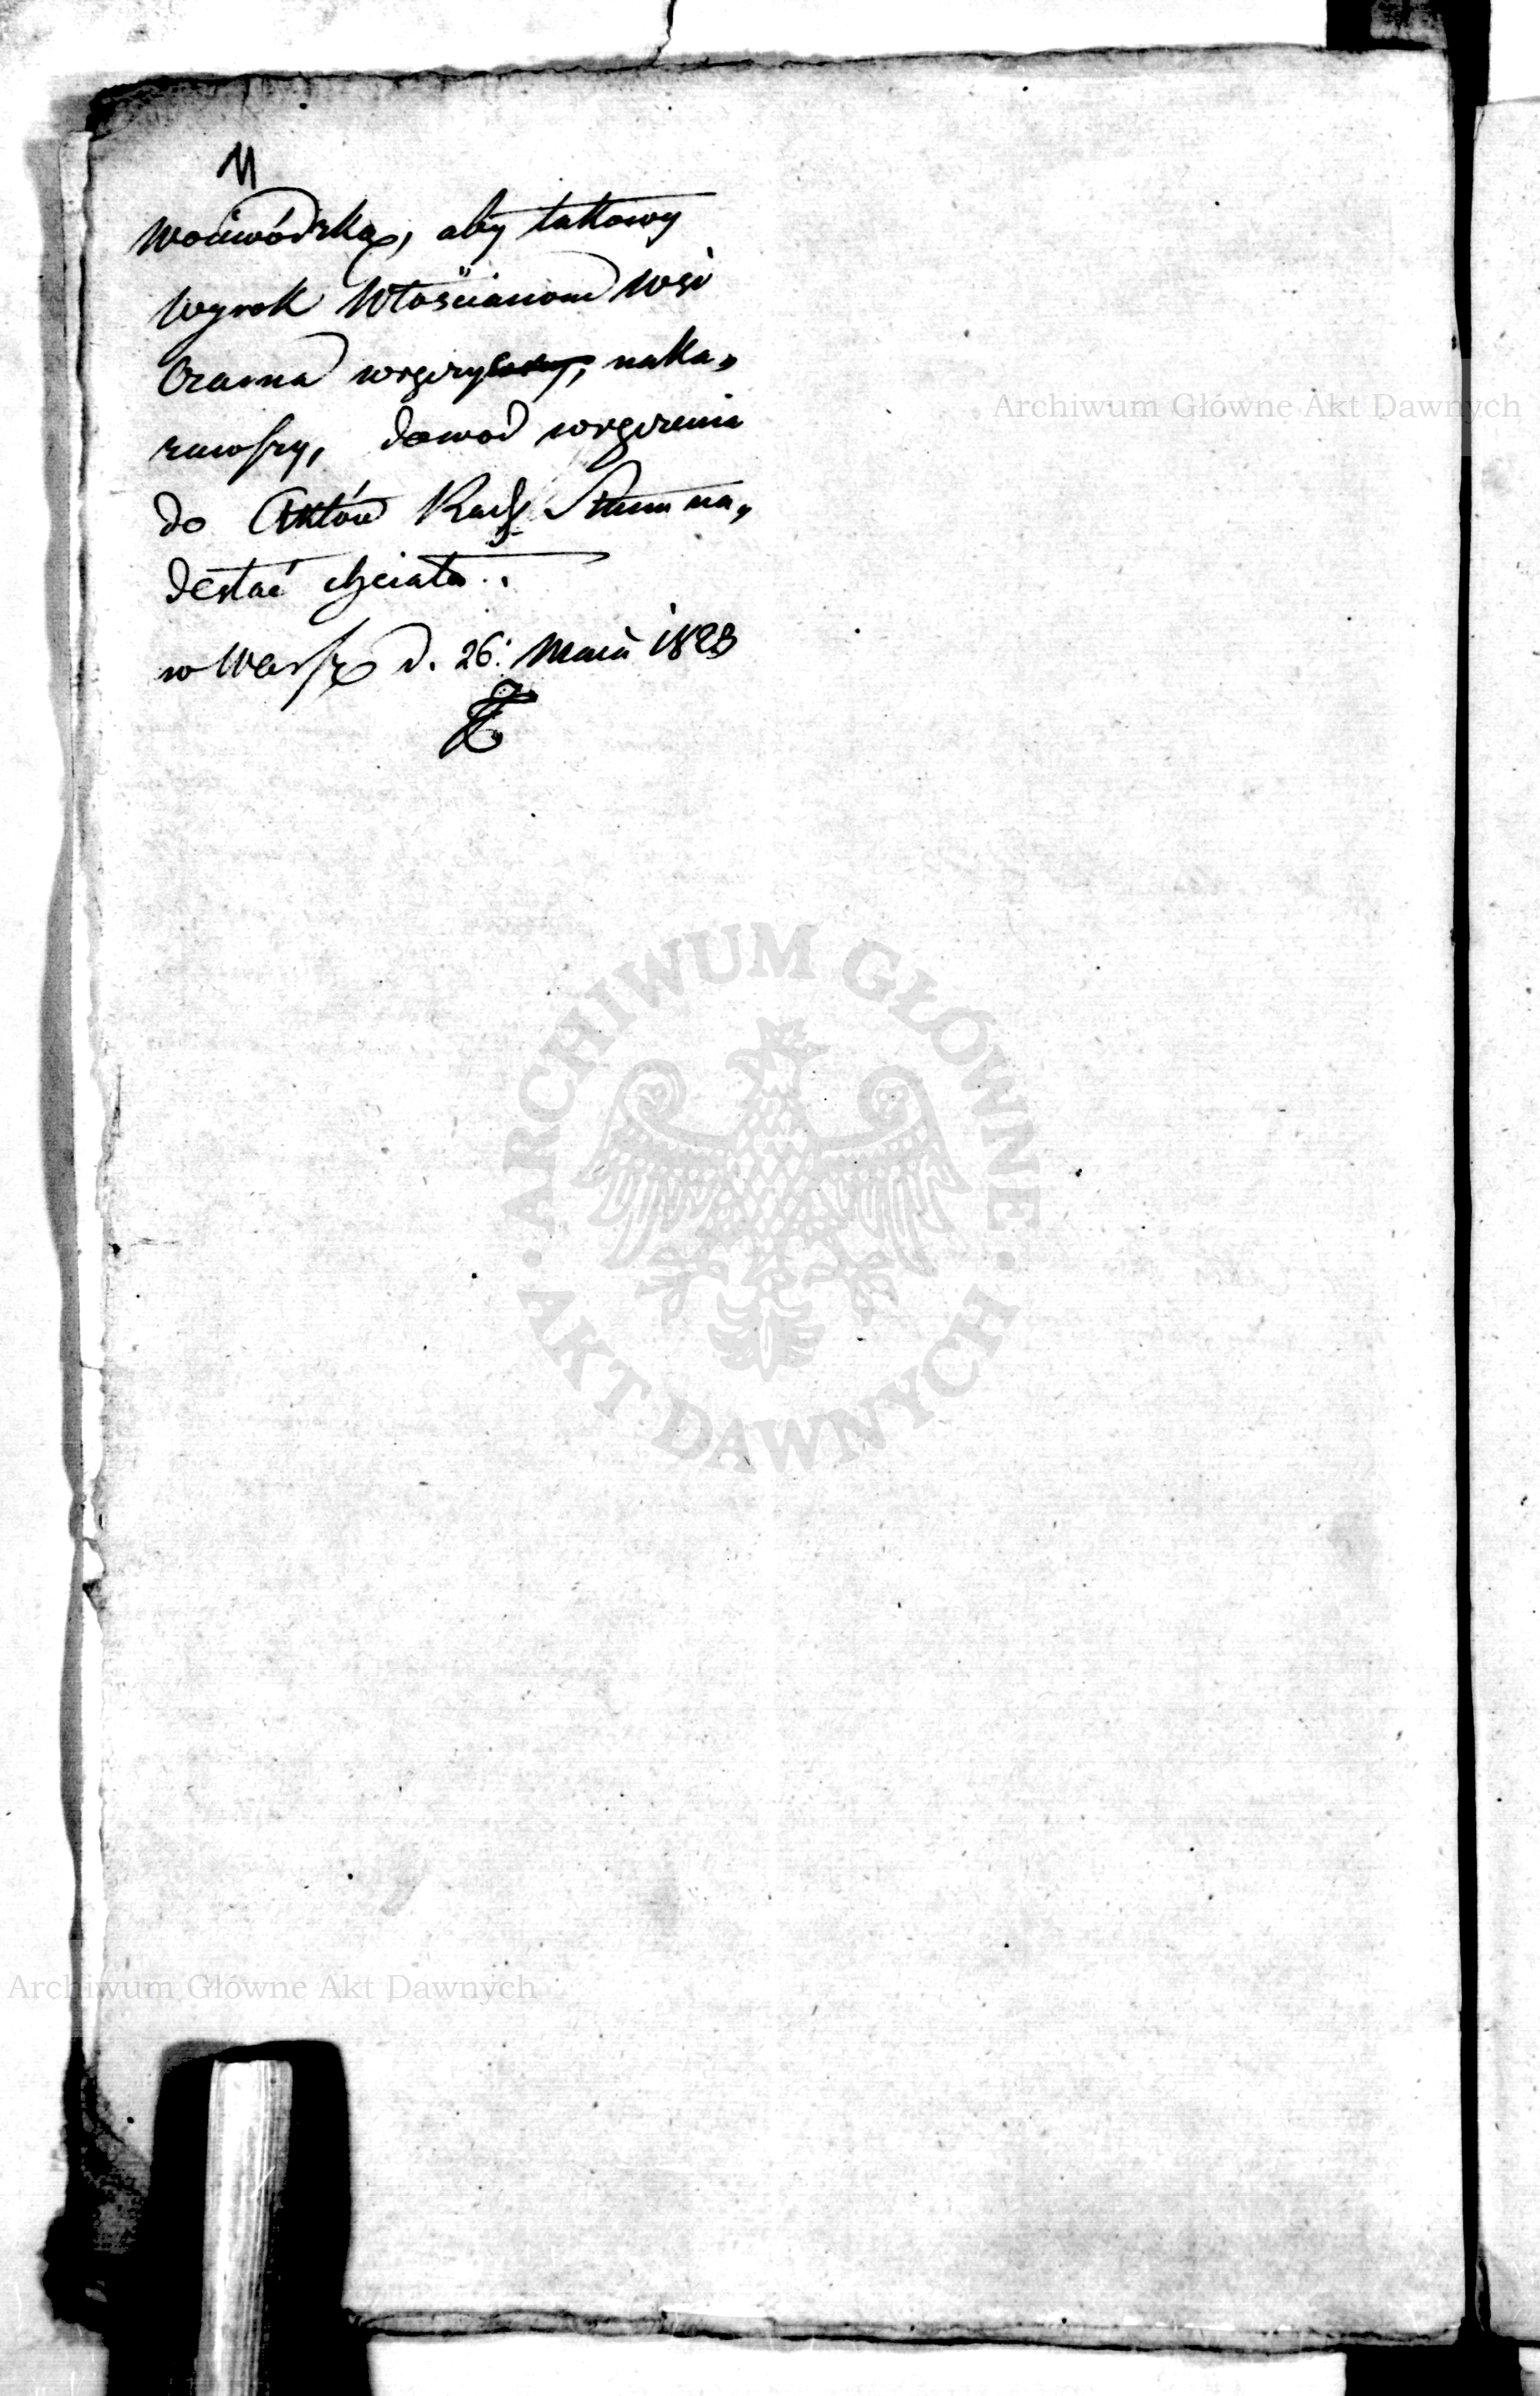 11
Woiewódzką, aby takowy
wyrok Włościanom wsi
Czarna wręczyć, naka„
zawszy, dowod wręczenia
do Aktów Rady Stanu na„
desłać chciała.
w Warsz d. 26. Maia 1823
Archiwum Główne Akt Dawnych
ARCHIWUM GŁÓWNE
AKT DAWNYCH
Archiwum Główne Akt Dawnych